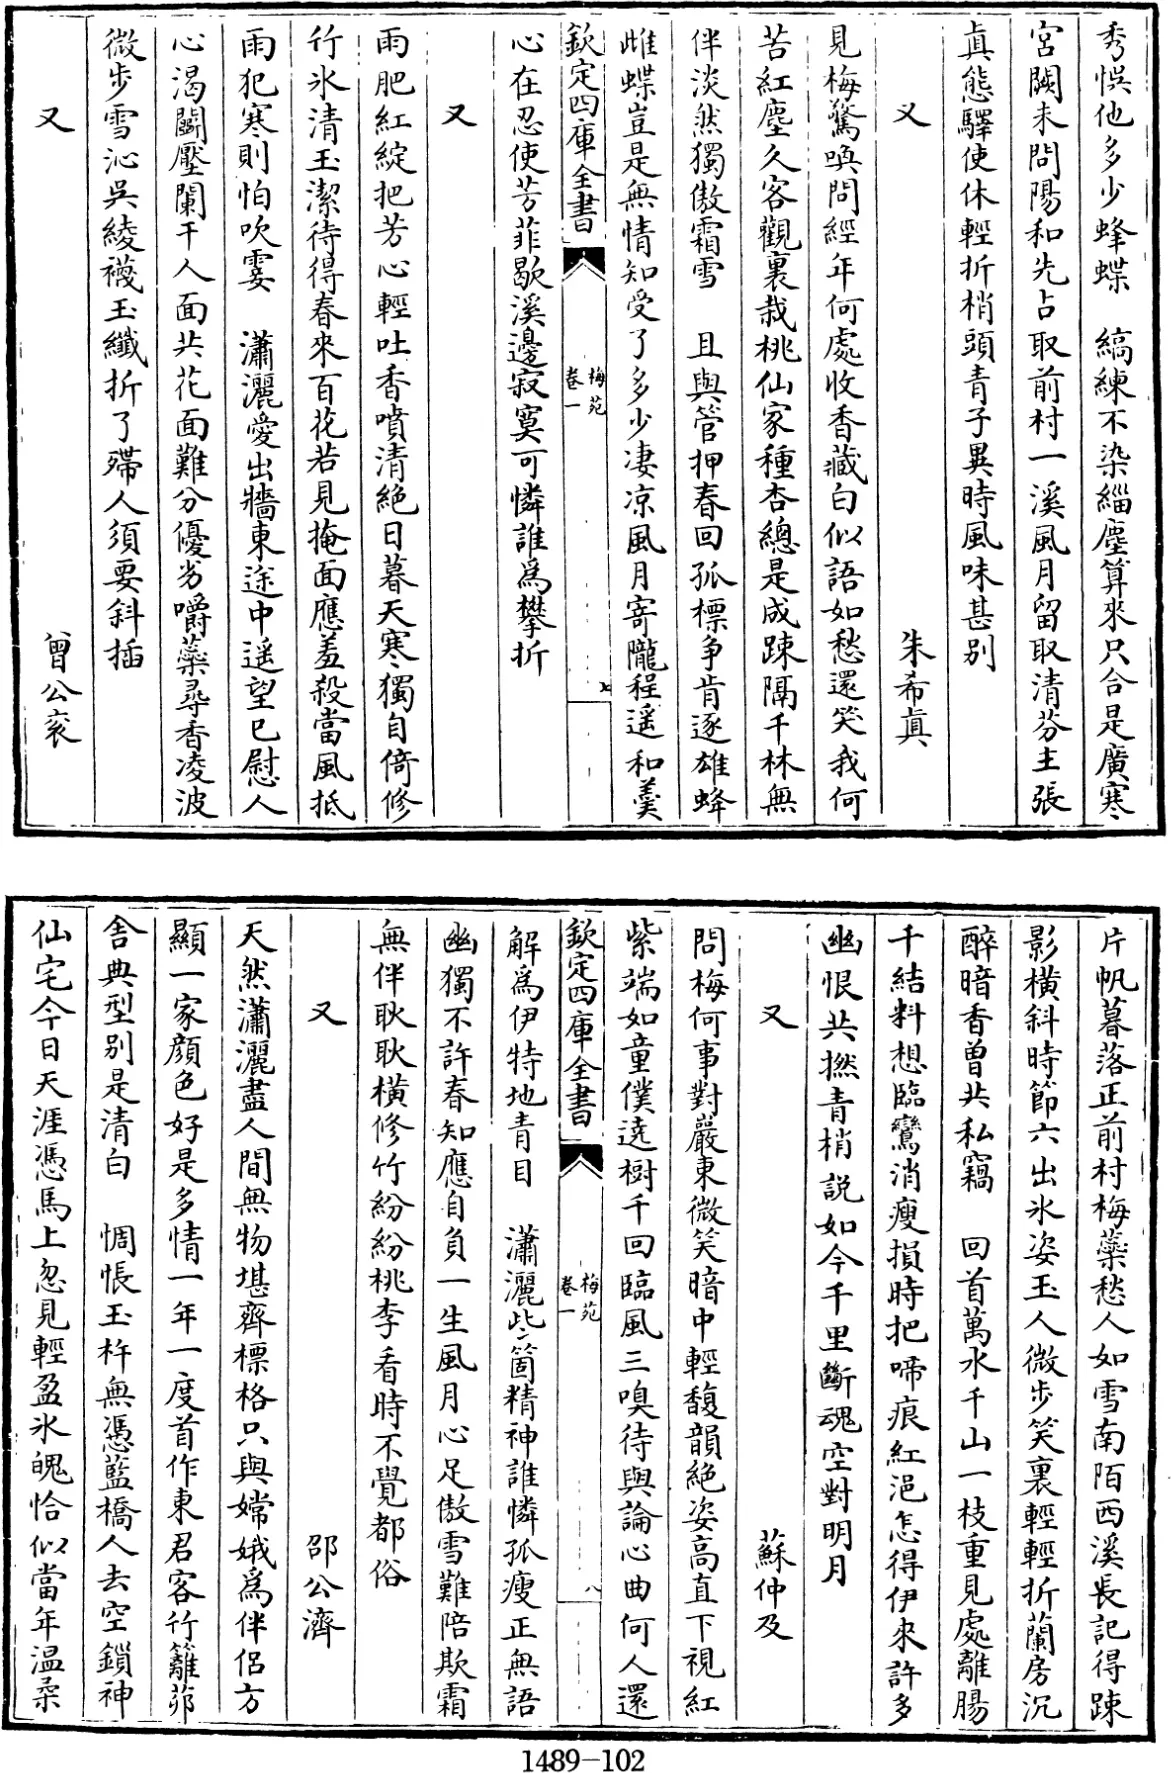 秀悞他多少蜂蝶　縞練不染緇塵算來只合是廣寒
宮闕未問陽和先占取前村一溪風月留取清芬主張
真態驛使休輕折梢頭青子異時風味甚别
又　朱希真
見梅驚喚問經年何處收香藏白似語如愁還笑我何
苦紅塵久客觀裏栽桃仙家種杏總是成踈隔千林無
伴淡然獨傲霜雪　且與管押春回孤標争肯逐雄蜂
雌蝶豈是無情知受了多少凄凉風月寄隴程遥和羹
欽定四庫全書
梅苑
卷一
七
心在忍使芳菲歇溪邊寂寞可憐誰為攀折
又
雨肥紅綻把芳心輕吐香噴清絶日暮天寒獨自倚修
竹氷清玉潔待得春來百花若見掩面應羞殺當風抵
雨犯寒則怕吹霎　瀟灑愛出牆東途中遥望已慰人
心渴鬭壓闌干人面共花面難分優劣嚼蘂尋香凌波
微步雪沁吳綾襪玉纖折了殢人須要斜插
又　曾公衮
片帆暮落正前村梅蘂愁人如雪南陌西溪長記得踈
影横斜時節六出氷姿玉人微步笑裏輕輕折蘭房沉
醉暗香曾共私竊　回首萬水千山一枝重見處離腸
千結料想臨鸞消瘦損時把啼痕紅浥怎得伊來許多
幽恨共撚青梢說如今千里斷魂空對明月
又　蘇仲及
問梅何事對嚴東微笑暗中輕馥韻絶姿高直下視紅
紫端如童僕遶樹千回臨風三嗅待與論心曲何人還
欽定四庫全書
梅苑
卷一
八
解為伊特地青目　瀟灑此箇精神誰憐孤瘦正無語
幽獨不許春知應自負一生風月心足傲雪難陪欺霜
無伴耿耿横修竹紛紛桃李看時不覺都俗
又　邵公濟
天然瀟灑盡人間無物堪齊標格只與嫦娥為伴侣方
顯一家顔色好是多情一年一度首作東君客竹籬茆
舍典型别是清白　惆悵玉杵無憑藍橋人去空鎖神
仙宅今日天涯憑馬上忽見輕盈氷魄恰似當年温柔
1489-102